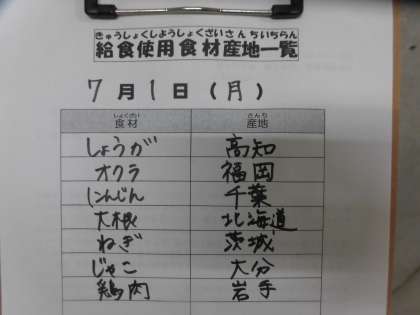 きゅうしょくしようしょくざいさんちいちらん
給食使用食材産地一覧
7月1日(月)
しょくざい さんち
食材 産地
しょうが 高知
オクラ 福岡
にんじん 千葉
大根 北海道
ねぎ 茨城
じゃこ 大分
鶏肉 岩手